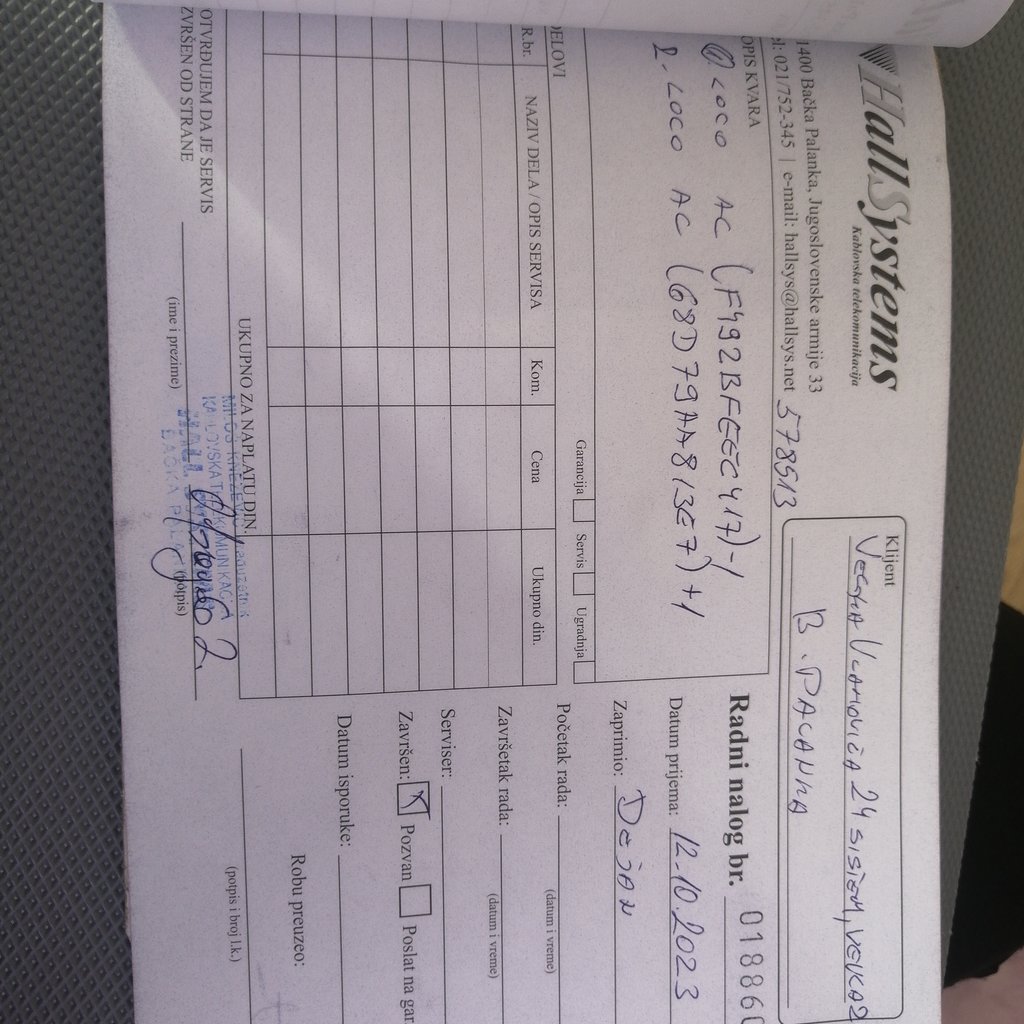 HallSystems
Kablovska telekomunikacija
1400 Bačka Palanka, Jugoslovenske armije 33
el: 021/752-345 | e-mail: hallsys@hallsys.net 578513
Klijent
24 SISTEM,
B. PALANKA
OPIS KVARA
1. LOCO AC (F492BFEEC417) -1
2. LOCO AC (68D79AA813E7) +1
Garancija Servis Ugradnja
DELOVI
R.br. NAZIV DELA / OPIS SERVISA Kom. Cena Ukupno din.
UKUPNO ZA NAPLATU DIN.
OTVRĐUJEM DA JE SERVIS
ZVRŠEN OD STRANE
(ime i prezime) (potpis)
Radni nalog br. 018860
Datum prijema: 12.10.2023
Zaprimio: DEJAN
Početak rada:
(datum i vreme)
Završetak rada:
(datum i vreme)
Serviser:
Završen: X Pozvan Poslat na gar
Datum isporuke:
Robu preuzeo:
(potpis i broj l.k.)